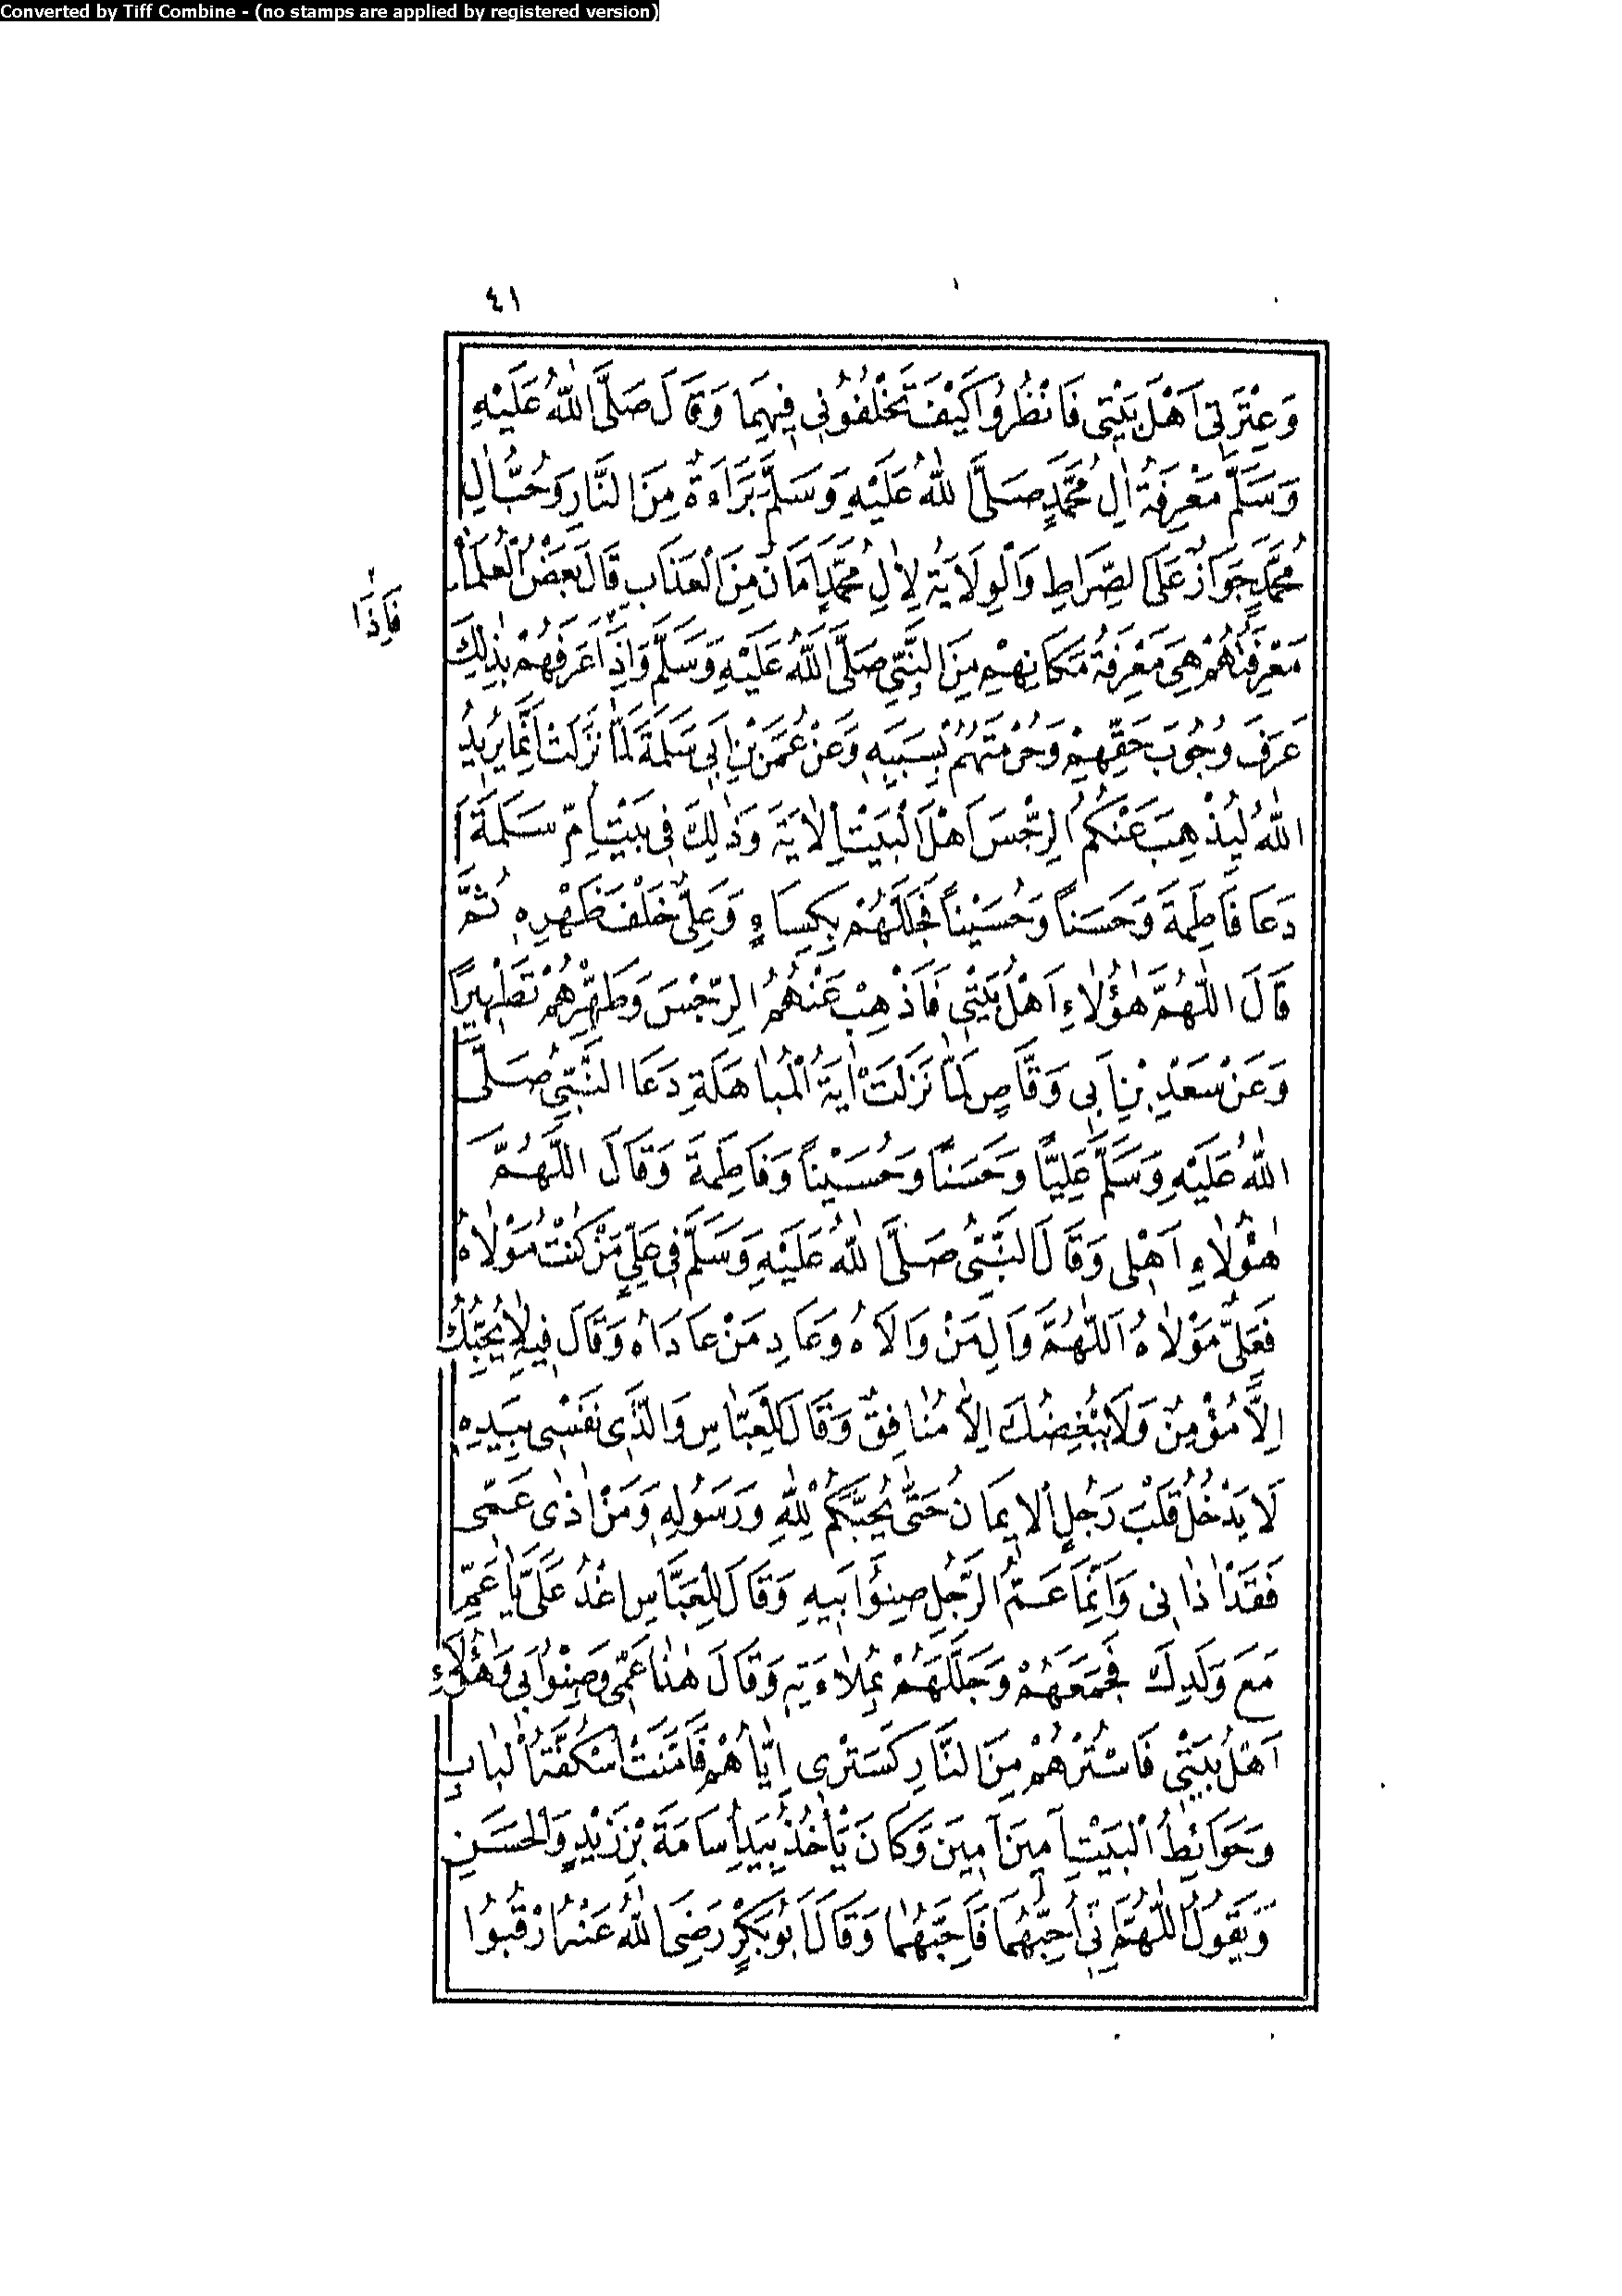 Converted by Tiff Combine - (no stamps are applied by registered version)
٤١
وَعِتْرَتِى اَهْلَ بَيْتِى فَانْظُرُوا كَيْفَ تَخْلُفُونِى فِيهِمَا وَقَالَ صَلَّى اللّٰهُ عَلَيْهِ
وَسَلَّمَ مَعْرِفَةُ اٰلِ مُحَمَّدٍ صَلَّى اللّٰهُ عَلَيْهِ وَسَلَّمَ بَرَاءَةٌ مِنَ النَّارِ وَحُبُّ اٰلِ
مُحَمَّدٍ جَوَازٌ عَلَى الصِّرَاطِ وَالْوِلَايَةُ لِاٰلِ مُحَمَّدٍ اَمَانٌ مِنَ الْعَذَابِ قَالَ بَعْضُ الْعُلَمَاءِ
مَعْرِفَتُهُمْ هِىَ مَعْرِفَةُ مَكَانِهِمْ مِنَ النَّبِىِّ صَلَّى اللّٰهُ عَلَيْهِ وَسَلَّمَ وَاِذَا عَرَفَهُمْ بِذٰلِكَ
فَاِذَا
عَرَفَ وُجُوبَ حَقِّهِمْ وَحُرْمَتِهِمْ بِسَبَبِهِ وَعَنْ عُمَرَ بْنِ اَبِى سَلَمَةَ لَمَّا نَزَلَتْ اِنَّمَا يُرِيدُ
اللّٰهُ لِيُذْهِبَ عَنْكُمُ الرِّجْسَ اَهْلَ الْبَيْتِ الْاٰيَةَ وَذٰلِكَ فِى بَيْتِ اُمِّ سَلَمَةَ
دَعَا فَاطِمَةَ وَحَسَناً وَحُسَيْناً فَجَلَّلَهُمْ بِكِسَاءٍ وَعَلِىٌّ خَلْفَ ظَهْرِهِ ثُمَّ
قَالَ اللّٰهُمَّ هٰؤُلَاءِ اَهْلُ بَيْتِى فَاَذْهِبْ عَنْهُمُ الرِّجْسَ وَطَهِّرْهُمْ تَطْهِيراً
وَعَنْ سَعْدِ بْنِ اَبِى وَقَّاصٍ لَمَّا نَزَلَتْ اٰيَةُ الْمُبَاهَلَةِ دَعَا النَّبِىُّ صَلَّى
اللّٰهُ عَلَيْهِ وَسَلَّمَ عَلِيًّا وَحَسَناً وَحُسَيْناً وَفَاطِمَةَ وَقَالَ اللّٰهُمَّ
هٰؤُلَاءِ اَهْلِى وَقَالَ النَّبِىُّ صَلَّى اللّٰهُ عَلَيْهِ وَسَلَّمَ فِى عَلِىٍّ مَنْ كُنْتُ مَوْلَاهُ
فَعَلِىٌّ مَوْلَاهُ اَللّٰهُمَّ وَالِ مَنْ وَالَاهُ وَعَادِ مَنْ عَادَاهُ وَقَالَ فِيهِ لَا يُحِبُّكَ
اِلَّا مُؤْمِنٌ وَلَا يُبْغِضُكَ اِلَّا مُنَافِقٌ وَقَالَ لِلْعَبَّاسِ وَالَّذِى نَفْسِى بِيَدِهِ
لَا يَدْخُلُ قَلْبَ رَجُلٍ الْاِيمَانُ حَتَّى يُحِبَّكُمْ لِلّٰهِ وَرَسُولِهِ وَمَنْ اٰذٰى عَمِّى
فَقَدْ اٰذَانِى وَاِنَّمَا عَمُّ الرَّجُلِ صِنْوُ اَبِيهِ وَقَالَ لِلْعَبَّاسِ اغْدُ عَلَىَّ يَا عَمِّ
مَعَ وَلَدِكَ فَجَمَعَهُمْ وَجَلَّلَهُمْ بِمُلَاءَتِهِ وَقَالَ هٰذَا عَمِّى وَصِنْوُ اَبِى وَهٰؤُلَاءِ
اَهْلُ بَيْتِى فَاسْتُرْهُمْ مِنَ النَّارِ كَسَتْرِى اِيَّاهُمْ فَاَمَّنَتْ اُسْكُفَّةُ الْبَابِ
وَحَوَائِطُ الْبَيْتِ اٰمِينَ اٰمِينَ وَكَانَ يَأْخُذُ بِيَدِ اُسَامَةَ بْنِ زَيْدٍ وَالْحَسَنِ
وَيَقُولُ اللّٰهُمَّ اِنِّى اُحِبُّهُمَا فَاَحِبَّهُمَا وَقَالَ اَبُو بَكْرٍ رَضِىَ اللّٰهُ عَنْهُ ارْقُبُوا